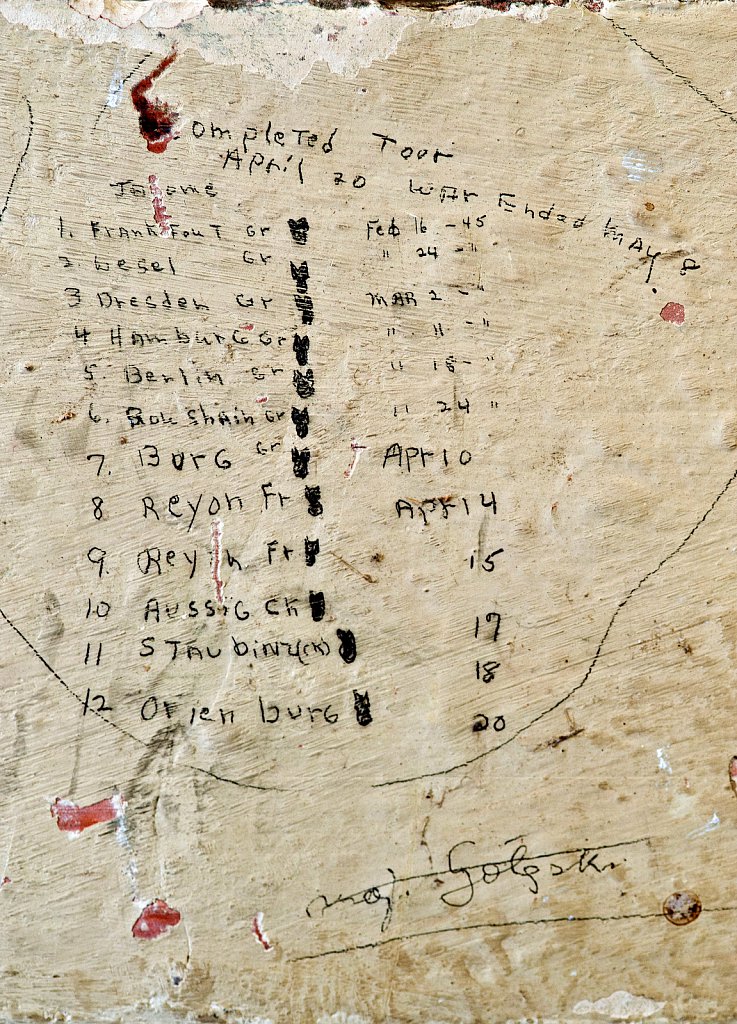 Completed Toor
April 20 War Ended May 8
1. Frankfout Gr Feb 16 -45
2. Wesel Gr " 24 -"
3 Dresden Gr MAR 2 -"
4 Hamburg Gr " 11 -"
5. Berlin Gr " 18 - "
6. Gr " 24 "
7. Burg Gr Apr 10
8 Reyon Fr Apr 14
9. Reyon Fr 15
10 Aussig CK 17
11 STAubing (CK) 18
12 Orienburg 20